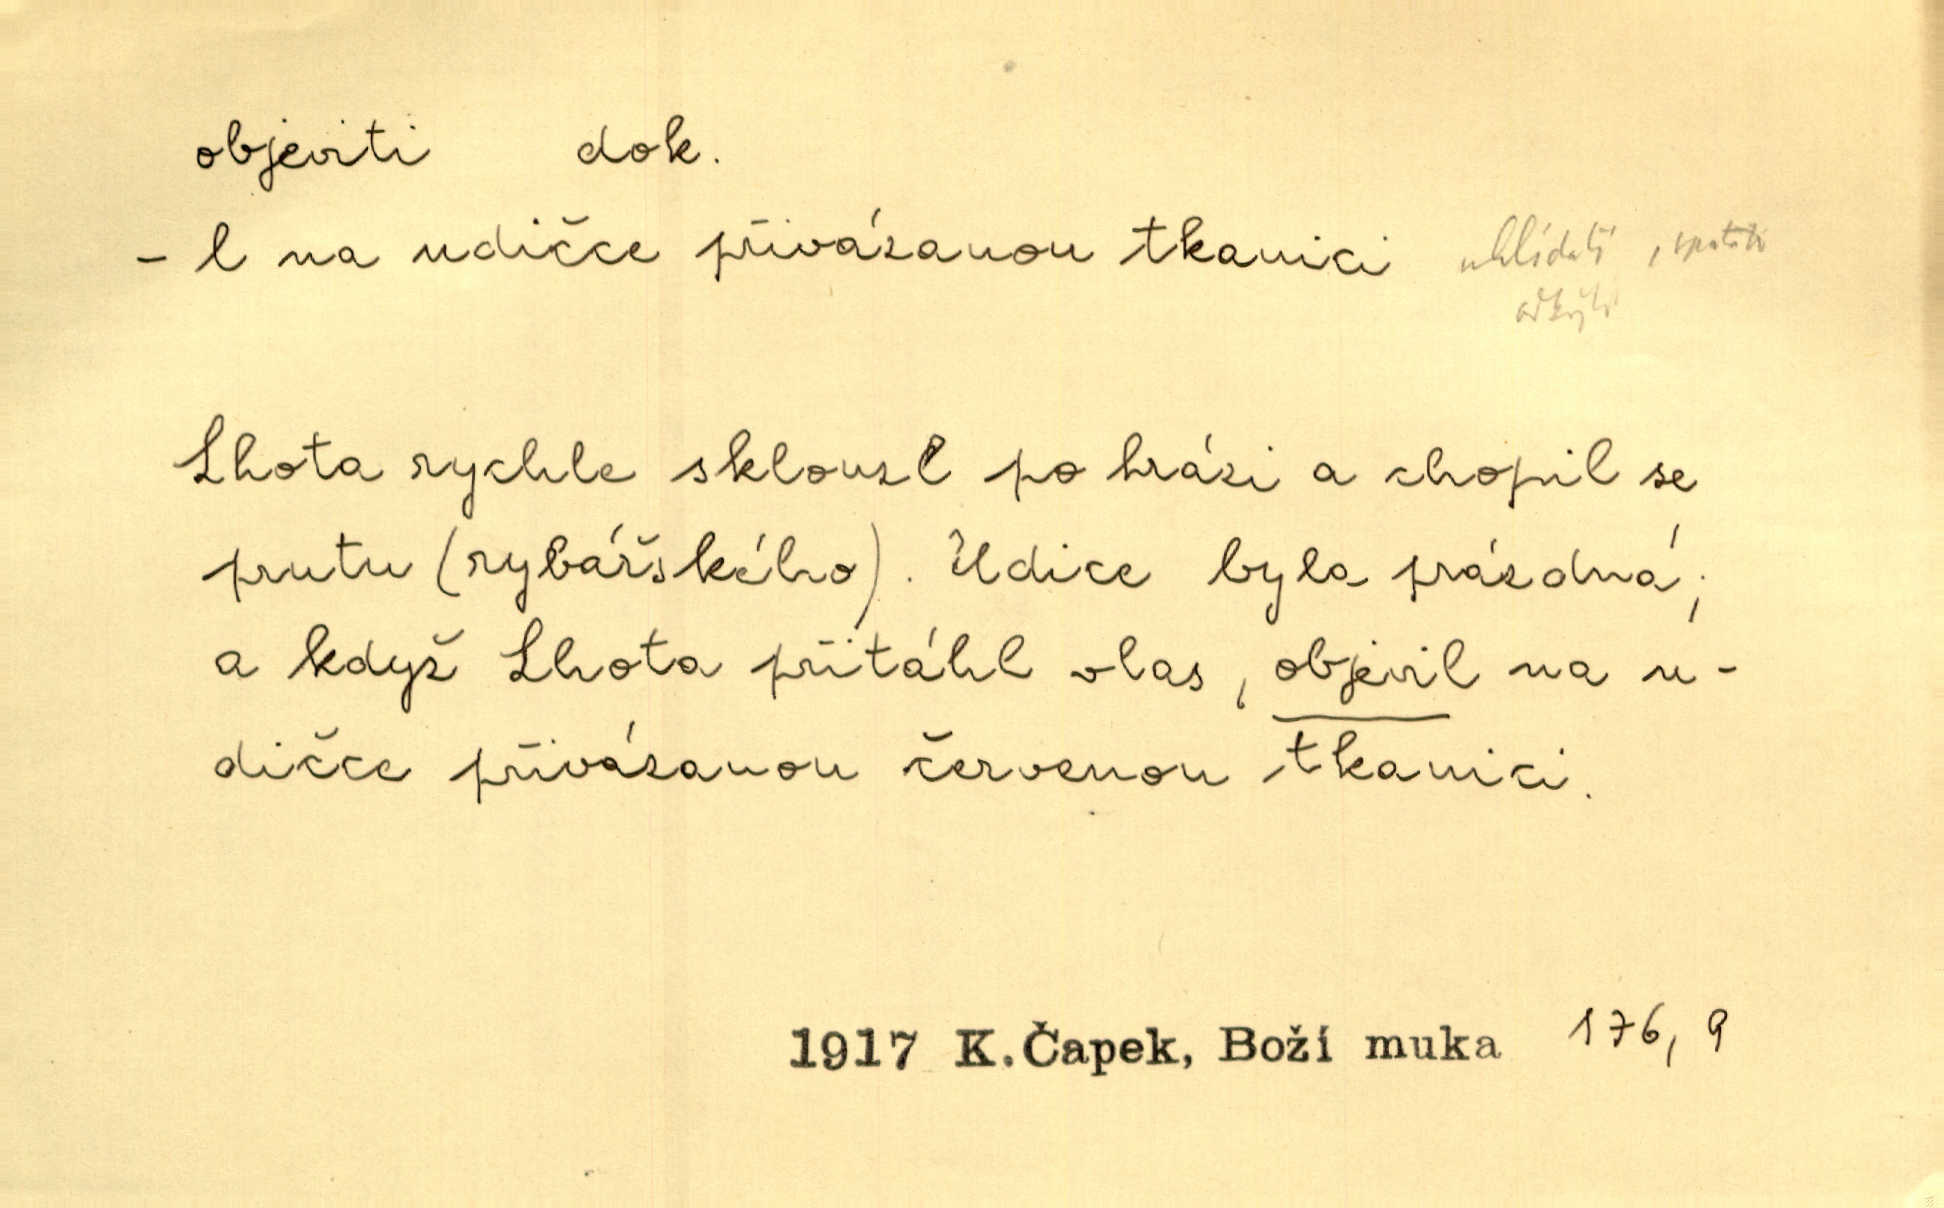 objeviti dok.
- l na udičce přivázanou tkanici uhlídati, spatřiti
odkrýti
Lhota rychle sklouzl po hrázi a chopil se
prutu (rybářského). Udice byla prázdná;
a když Lhota přitáhl vlas, objevil na u-
dičce přivázanou červenou tkanici.
1917 K. Čapek, Boží muka 176, 9